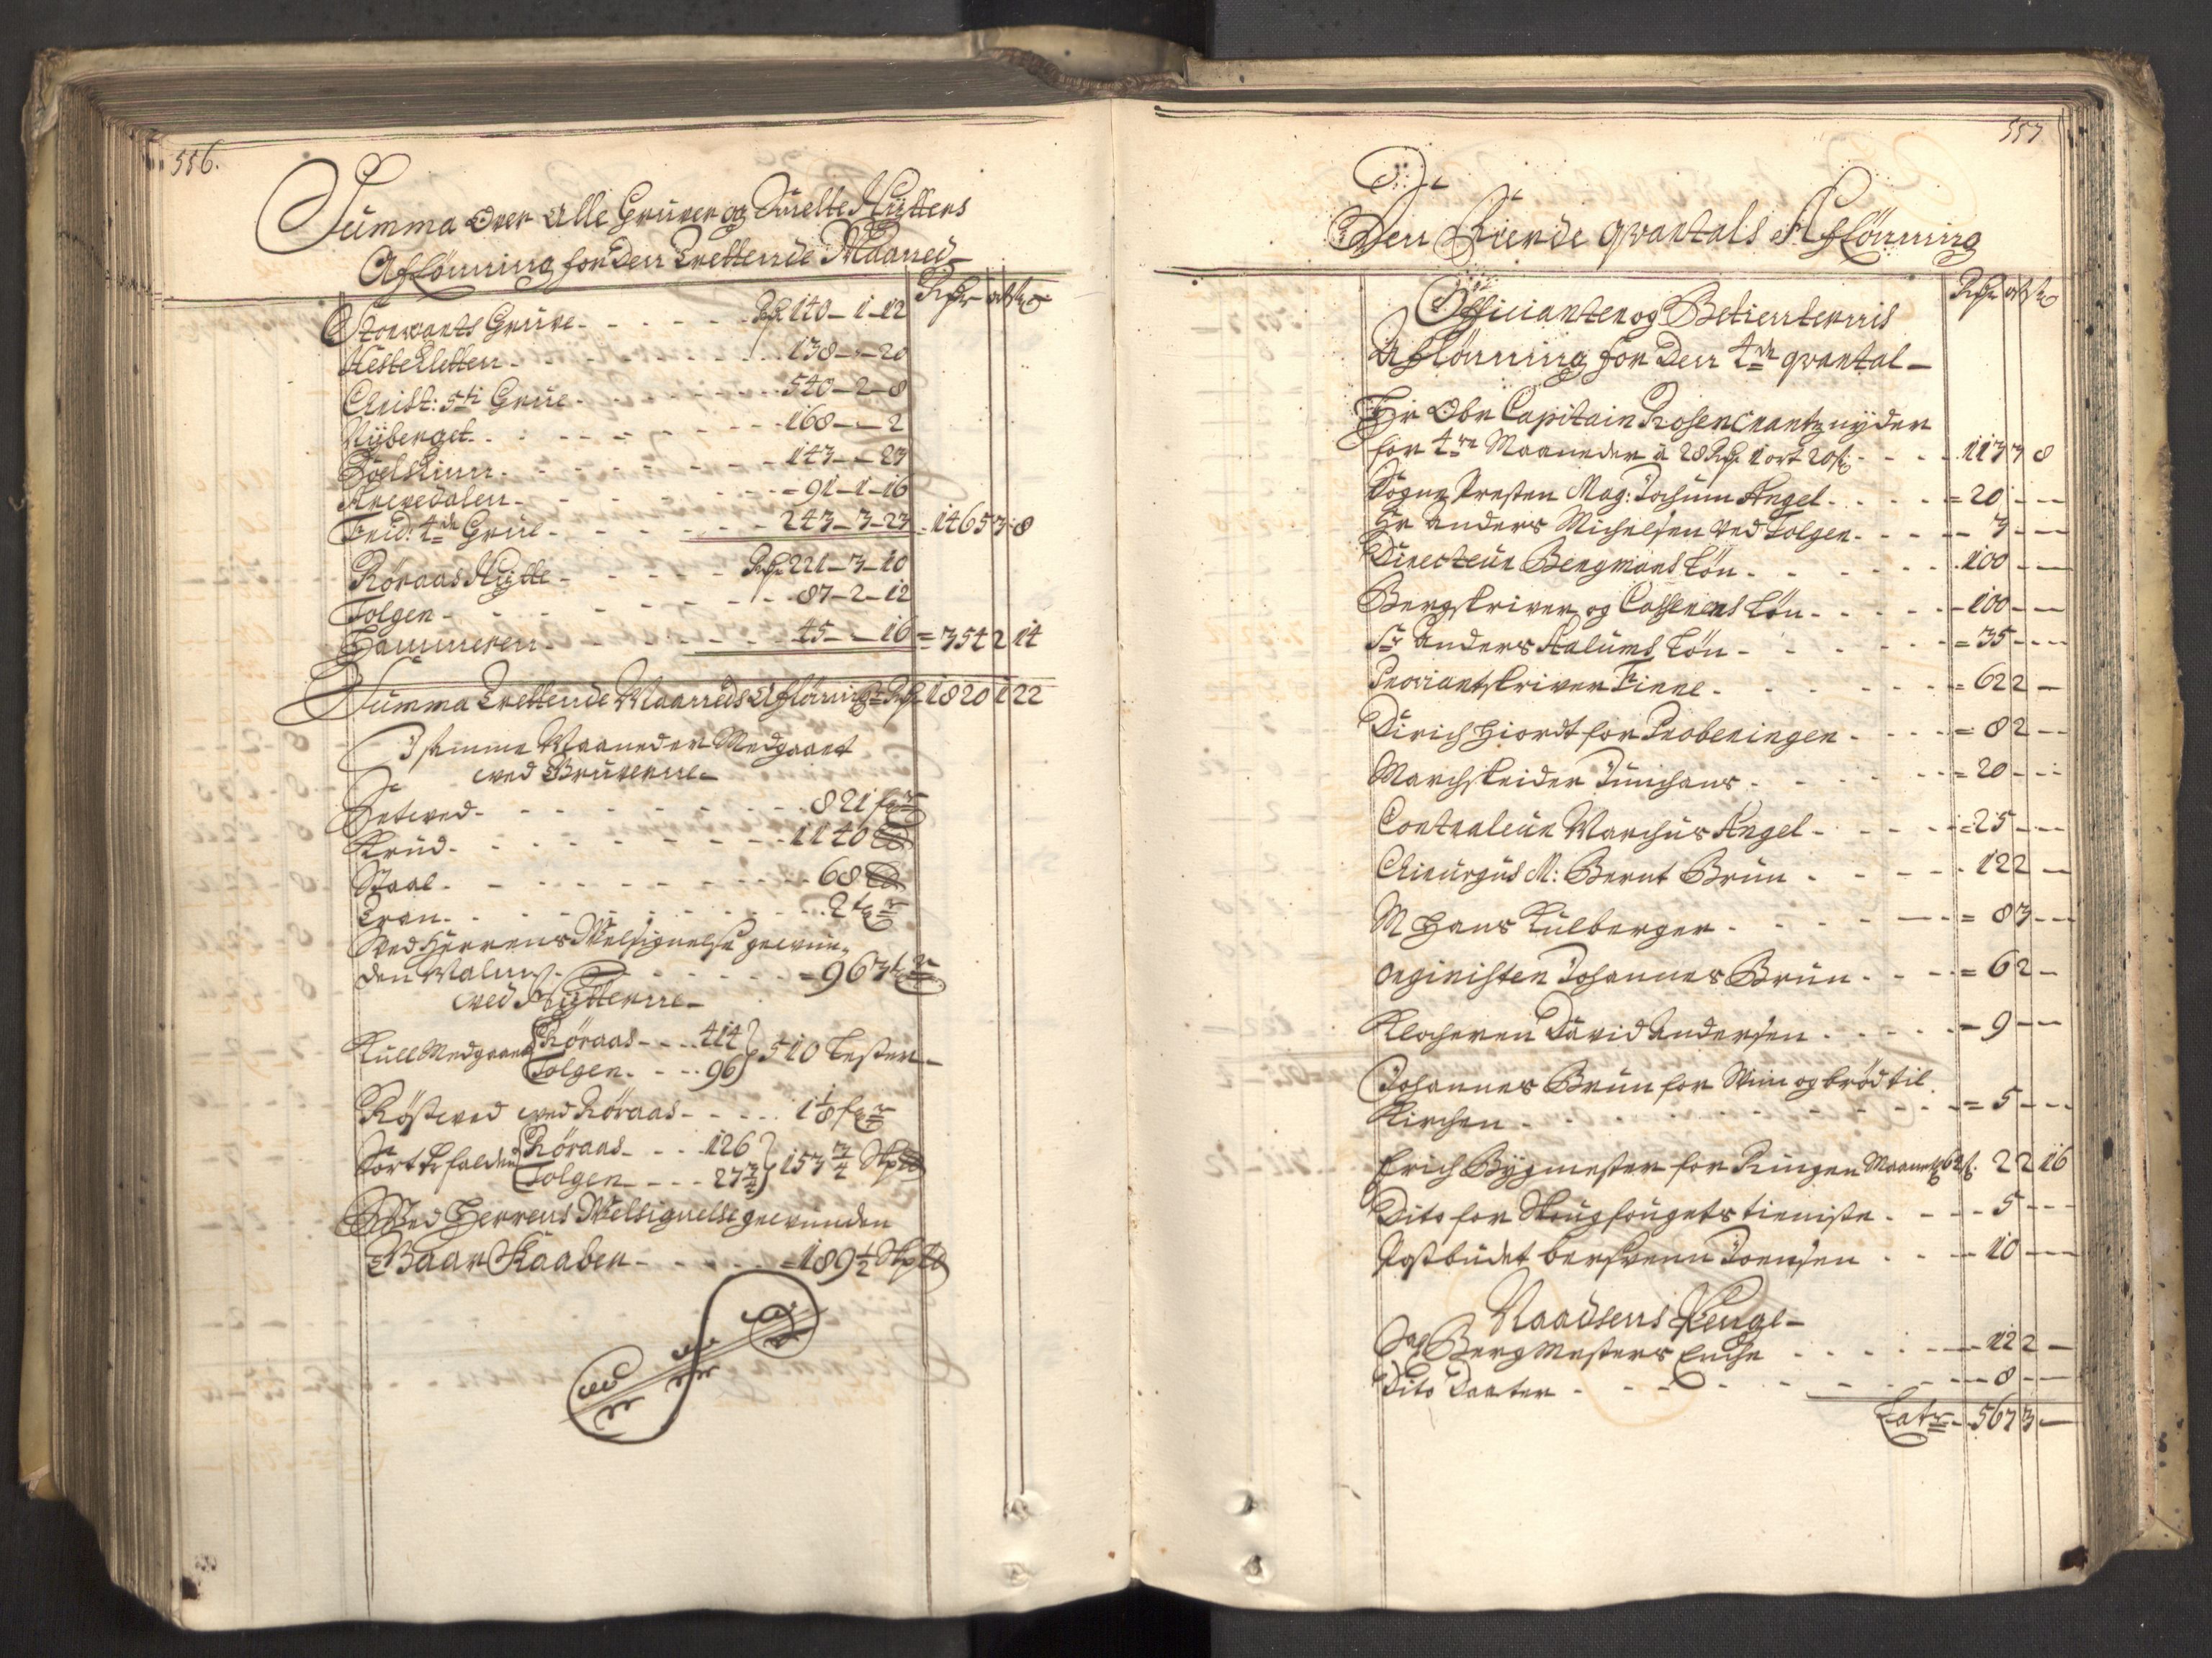 556.
Summa Over Alle Gruver og Smelte Hÿttens
Aflönning for den Trettende Maaned
Rdr ort s
Storvarts Grüve - - - - - Rdr 140 - 1 - 12
Hestkletten - - - - - 138 - - 20
Christ: 5ti Grüe - - - - - 540 - 2 - 8
Nÿberget - - - - - 168 - - 2
- - - - - 143 - - 23
Avevedalen - - - - - 91 - 1 - 16
Frid: 4de Grüe - - - - - 243 - 3 - 23 - 1465 3 8
Röraas Hÿtte - - - - - Rdr 221 - 3 - 10
Tolgen - - - - - 87 - 2 - 12
Hammeren - - - - - 45 - - 16 = 354 2 14
Summa Trettende Maaneds Aflöning = Rdr 1820 1 22
I samme Maaneder Medgaaet
ved Gruverne
Setved - - - - - 821 f
Krud - - - - - 1140 ℔
Staal - - - - - 68 ℔
Tran - - - - - 2 tr
Ved Herrens Velsignelse gevun-
den Malm - - - - - 963 tr
ved Hÿtterne
Kull Medgaaet Röraas - - 414
Tolgen - - - 96 510 Lester
Röstved ved Röraas - - - - 1 1/8 f
Sort K falden Röraas - - - 126
Tolgen - - - 27 3/4 153 3/4 Sk℔
Ved Herrens Velsignelse gevunden
Gaar Kaaber - - - - - 189 1/2 Sk℔
557
Den Fierde qvartals Aflönning
Rdr ort s
Officianter og Betienternis
Aflönning for den 4de qvartal
Hr Obr Capitain Rosencrantz nÿder
for 4re Maaneder à 28 Rdr 1 ort 20 s - - - 113 3 8
Sogne Presten Mag: Jochum Angel - - - - = 20 - - -
Hr Anders Michelsen ved Tolgen - - - - 3 - - -
Directeur Bergmans Lön - - - - - 100 - - -
Bergskriver og Casserers Lön - - - - - 100 - - -
Sr Anders Aalums Lön - - - - = 35 - - -
Proviantskriver Finne - - - - = 62 2 -
Dirich Hiordt for Proberingen - - - - = 82 - -
Marchskeider Junghans - - - - = 20 - -
Contraleur Marchus Angel - - - - = 25 - - -
Chirurgus M: Bernt Brun - - - - 12 2 -
M Hans Kulberger - - - - = 83 - - -
Orginisten Johannes Brun - - - = 62 -
Klocheren David Andersen - - - - = 9 - - -
Johannes Brun for Viin og bröd til
Kirchen - - - - - = 5 - - -
Erich Bÿgmester for Ringen Maanetl 62 s. 2 2 16
Dito for Skougfougets tieniste - - - - 5 - - -
Postbudet Joensen - - - 10 - - -
Naadsens Penge
Sal Bergmesters Enche - - - - - 12 2 -
Dito Daater - - - - - 8 - -
Latr - 567 3 -